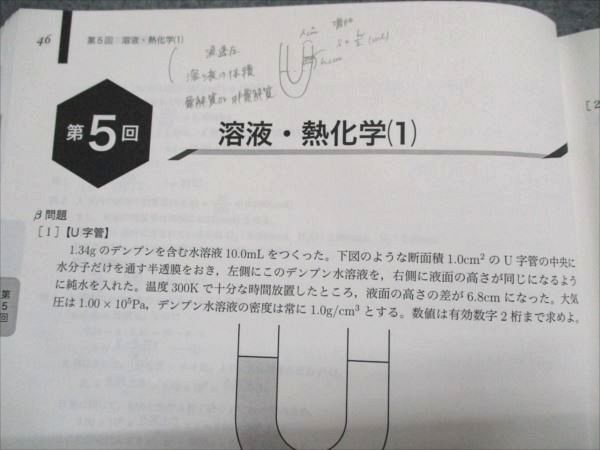 46
第5回 溶液・熱化学(1)
浸透圧
溶液の体積
電解質or非電解質
第5回
溶液・熱化学(1)
β問題
[1]【U字管】
1.34gのデンプンを含む水溶液10.0mLをつくった。下図のような断面積1.0cm²のU字管の中央に
水分子だけを通す半透膜をおき，左側にこのデンプン水溶液を，右側に液面の高さが同じになるよう
に純水を入れた。温度300Kで十分な時間放置したところ，液面の高さの差が6.8cmになった。大気
圧は1.00×10⁵Pa，デンプン水溶液の密度は常に1.0g/cm³とする。数値は有効数字2桁まで求めよ。
第5回
[2